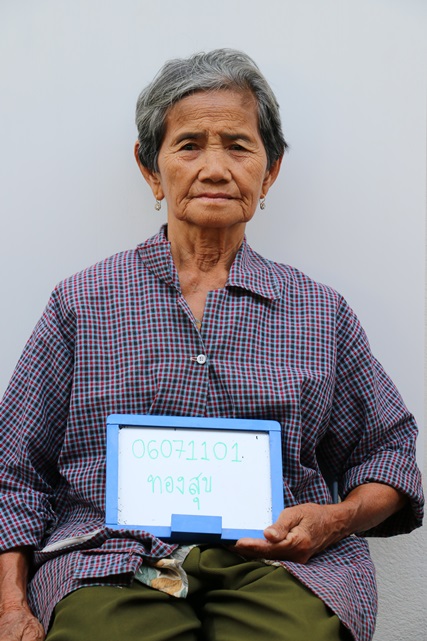 06071101
ทองสุข